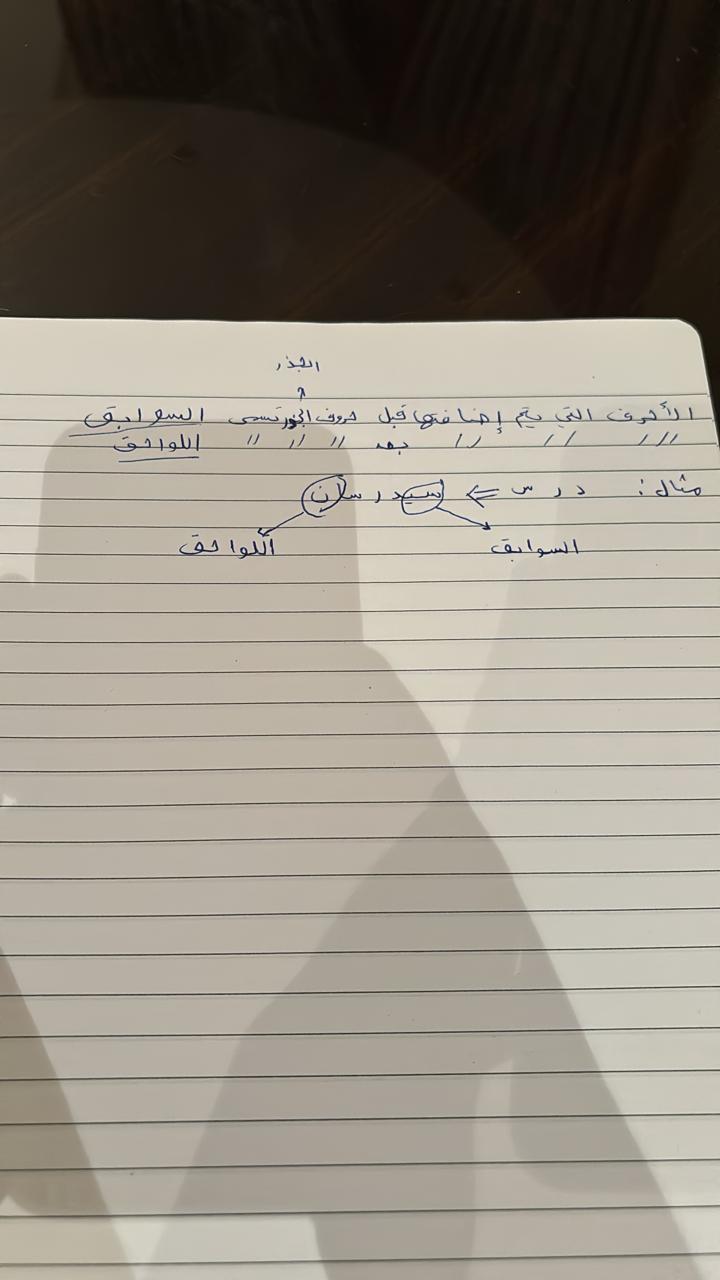 الجذر
الأحرف التي يتم إضافتها قبل حروف الجذر تسمى السوابق
/// // // بعد // // // اللواحق
مثال: د ر س ⇐ سيدرسان
السوابق اللواحق